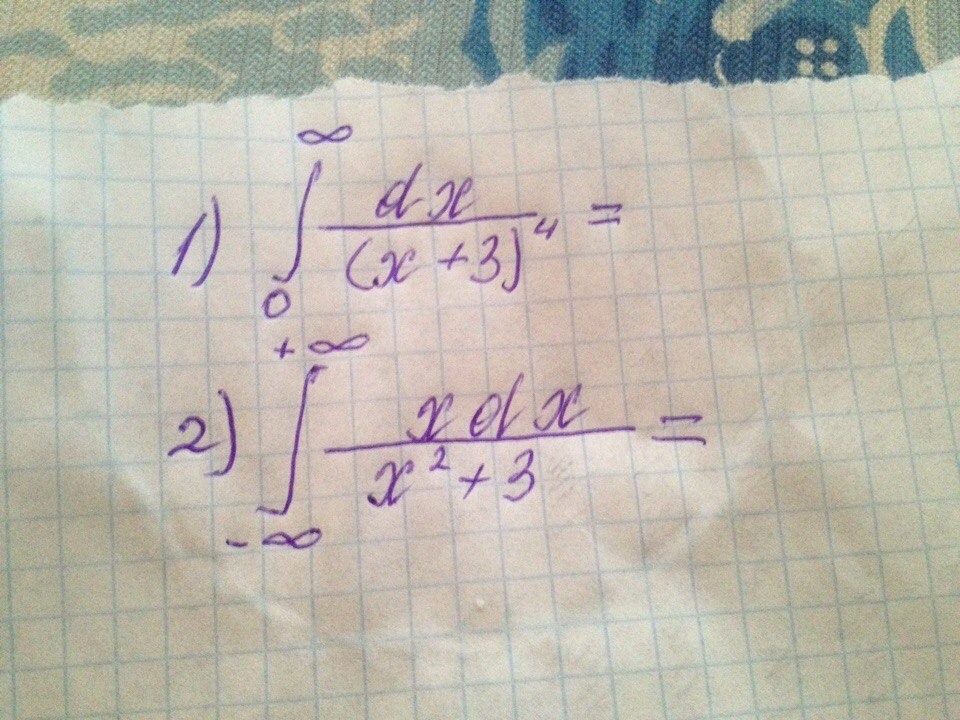 1) ∫₀^∞ dx/(x+3)⁴ =
2) ∫₋∞^+∞ xdx/x²+3 =